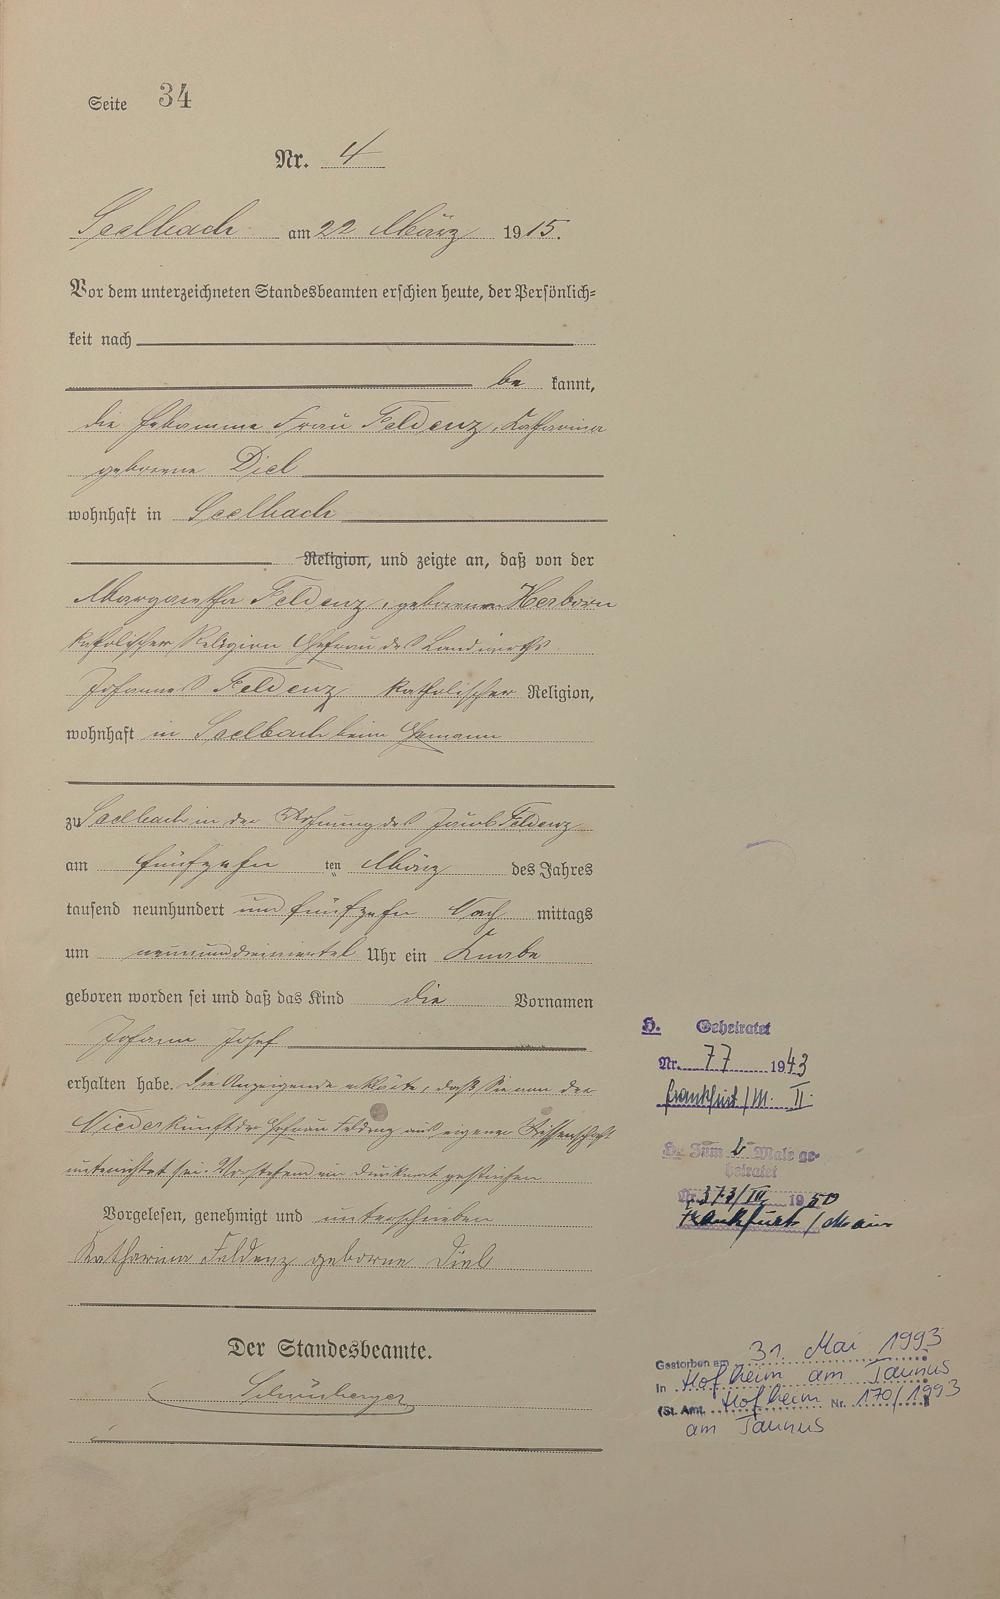 Seite 34
Nr. 4
Seelbach am 22 März 1915.
Vor dem unterzeichneten Standesbeamten erschien heute, der Persönlich=
keit nach
be kannt,
die Hebamme Frau Feldenz, Katharina
geborene Diel
wohnhaft in Seelbach
Religion, und zeigte an, daß von der
Margaretha Feldenz, geborenen Herborn
katholischer Religion Ehefrau des Landwirths
Johannes Feldenz katholischer Religion,
wohnhaft in Seelbach beim Ehemann
zu Seelbach in der Wohnung des Jacob Feldenz
am fünfzehn ten März des Jahres
tausend neunhundert und fünfzehn Nach mittags
um neununddreiviertel Uhr ein Knabe
geboren worden sei und daß das Kind die Vornamen
Johann Josef
erhalten habe. Die Anzeigende erklärte, daß Sie von der
Niederkunft der Ehefrau Feldenz aus eigener Wissenschaft
unterrichtet sei. Vorstehend ein Druckwort gestrichen
Vorgelesen, genehmigt und unterschrieben
Katharina Feldenz geborne Diel
Der Standesbeamte.
H. Geheiratet
Nr. 77 1943
Frankfurt/M. II.
H. Zum 2 Male ge-
heiratet
Nr. 373/III 1950
Frankfurt / Main
Gestorben am 31. Mai 1993
in Hofheim am Taunus
(St. Amt. Hofheim Nr. 170/1993
am Taunus